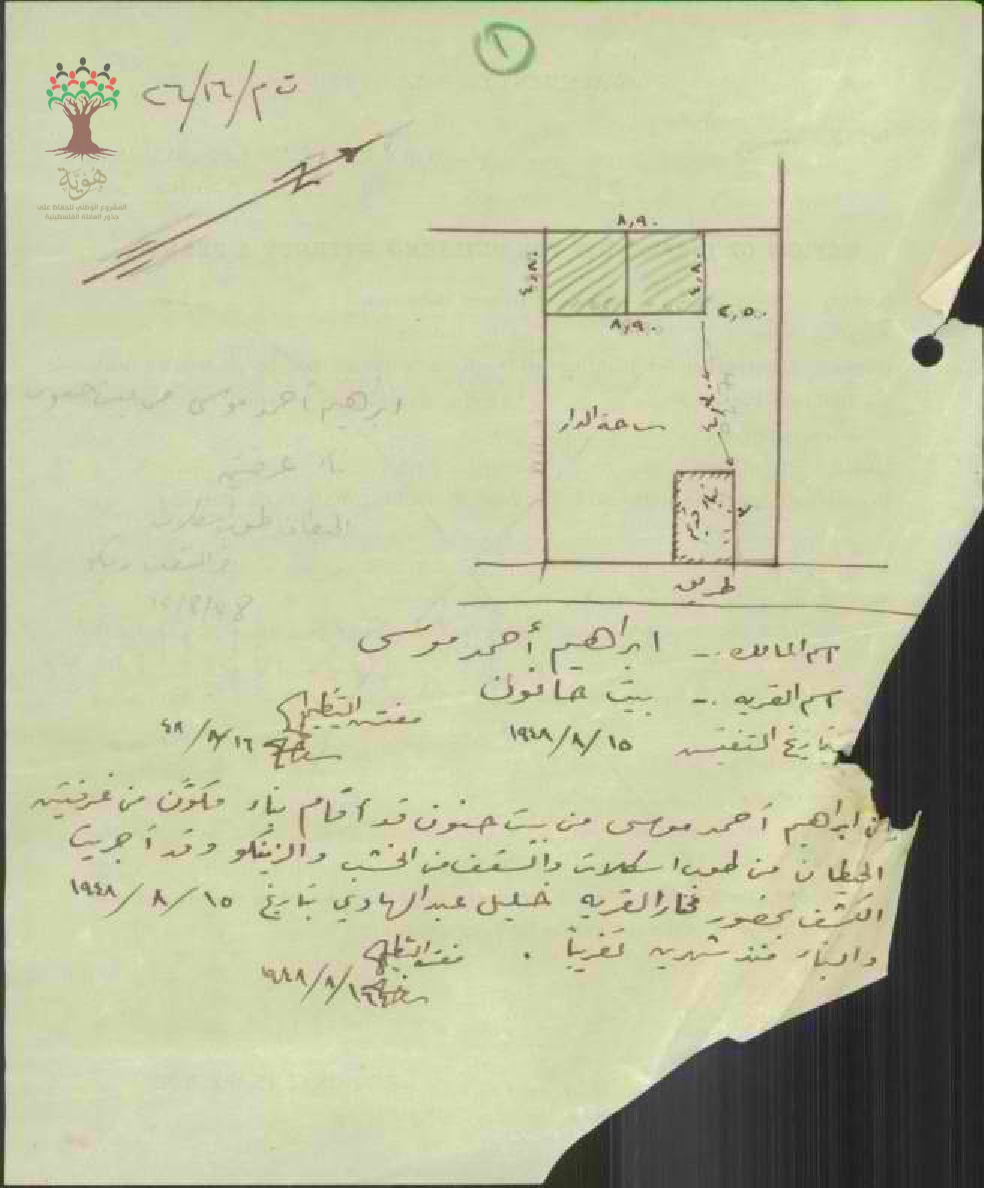 ١
ت م/١٦/٢٦
هوية
المشروع الوطني للحفاظ على
جذور العائلة الفلسطينية
N
٨,٩٠
٤,٨٠
٤,٨٠
٨,٩٠
٢,٥٠
ساحة الدار
طريق
اسم المالك :- ابراهيم أحمد موسى
اسم القريه :- بيت حانون
مفتش التنظيم
تاريخ التفتيش ١٥/٨/١٩٤٨
١٦/٨/٤٨
ان ابراهيم أحمد موسى من بيت حنون قد أقام بناء مكوّن من غرفتين
الحيطان من طوب اسكلات والسقف من الخشب والزينكو وقد أجريت
الكشف بحضور مختار القريه خليل عبد الهادي بتاريخ ١٥/٨/١٩٤٨
والبناء منذ شهرين تقريباً .
مفتش التنظيم
١٦/٨/١٩٤٨
ابراهيم أحمد موسى من بيت حنون